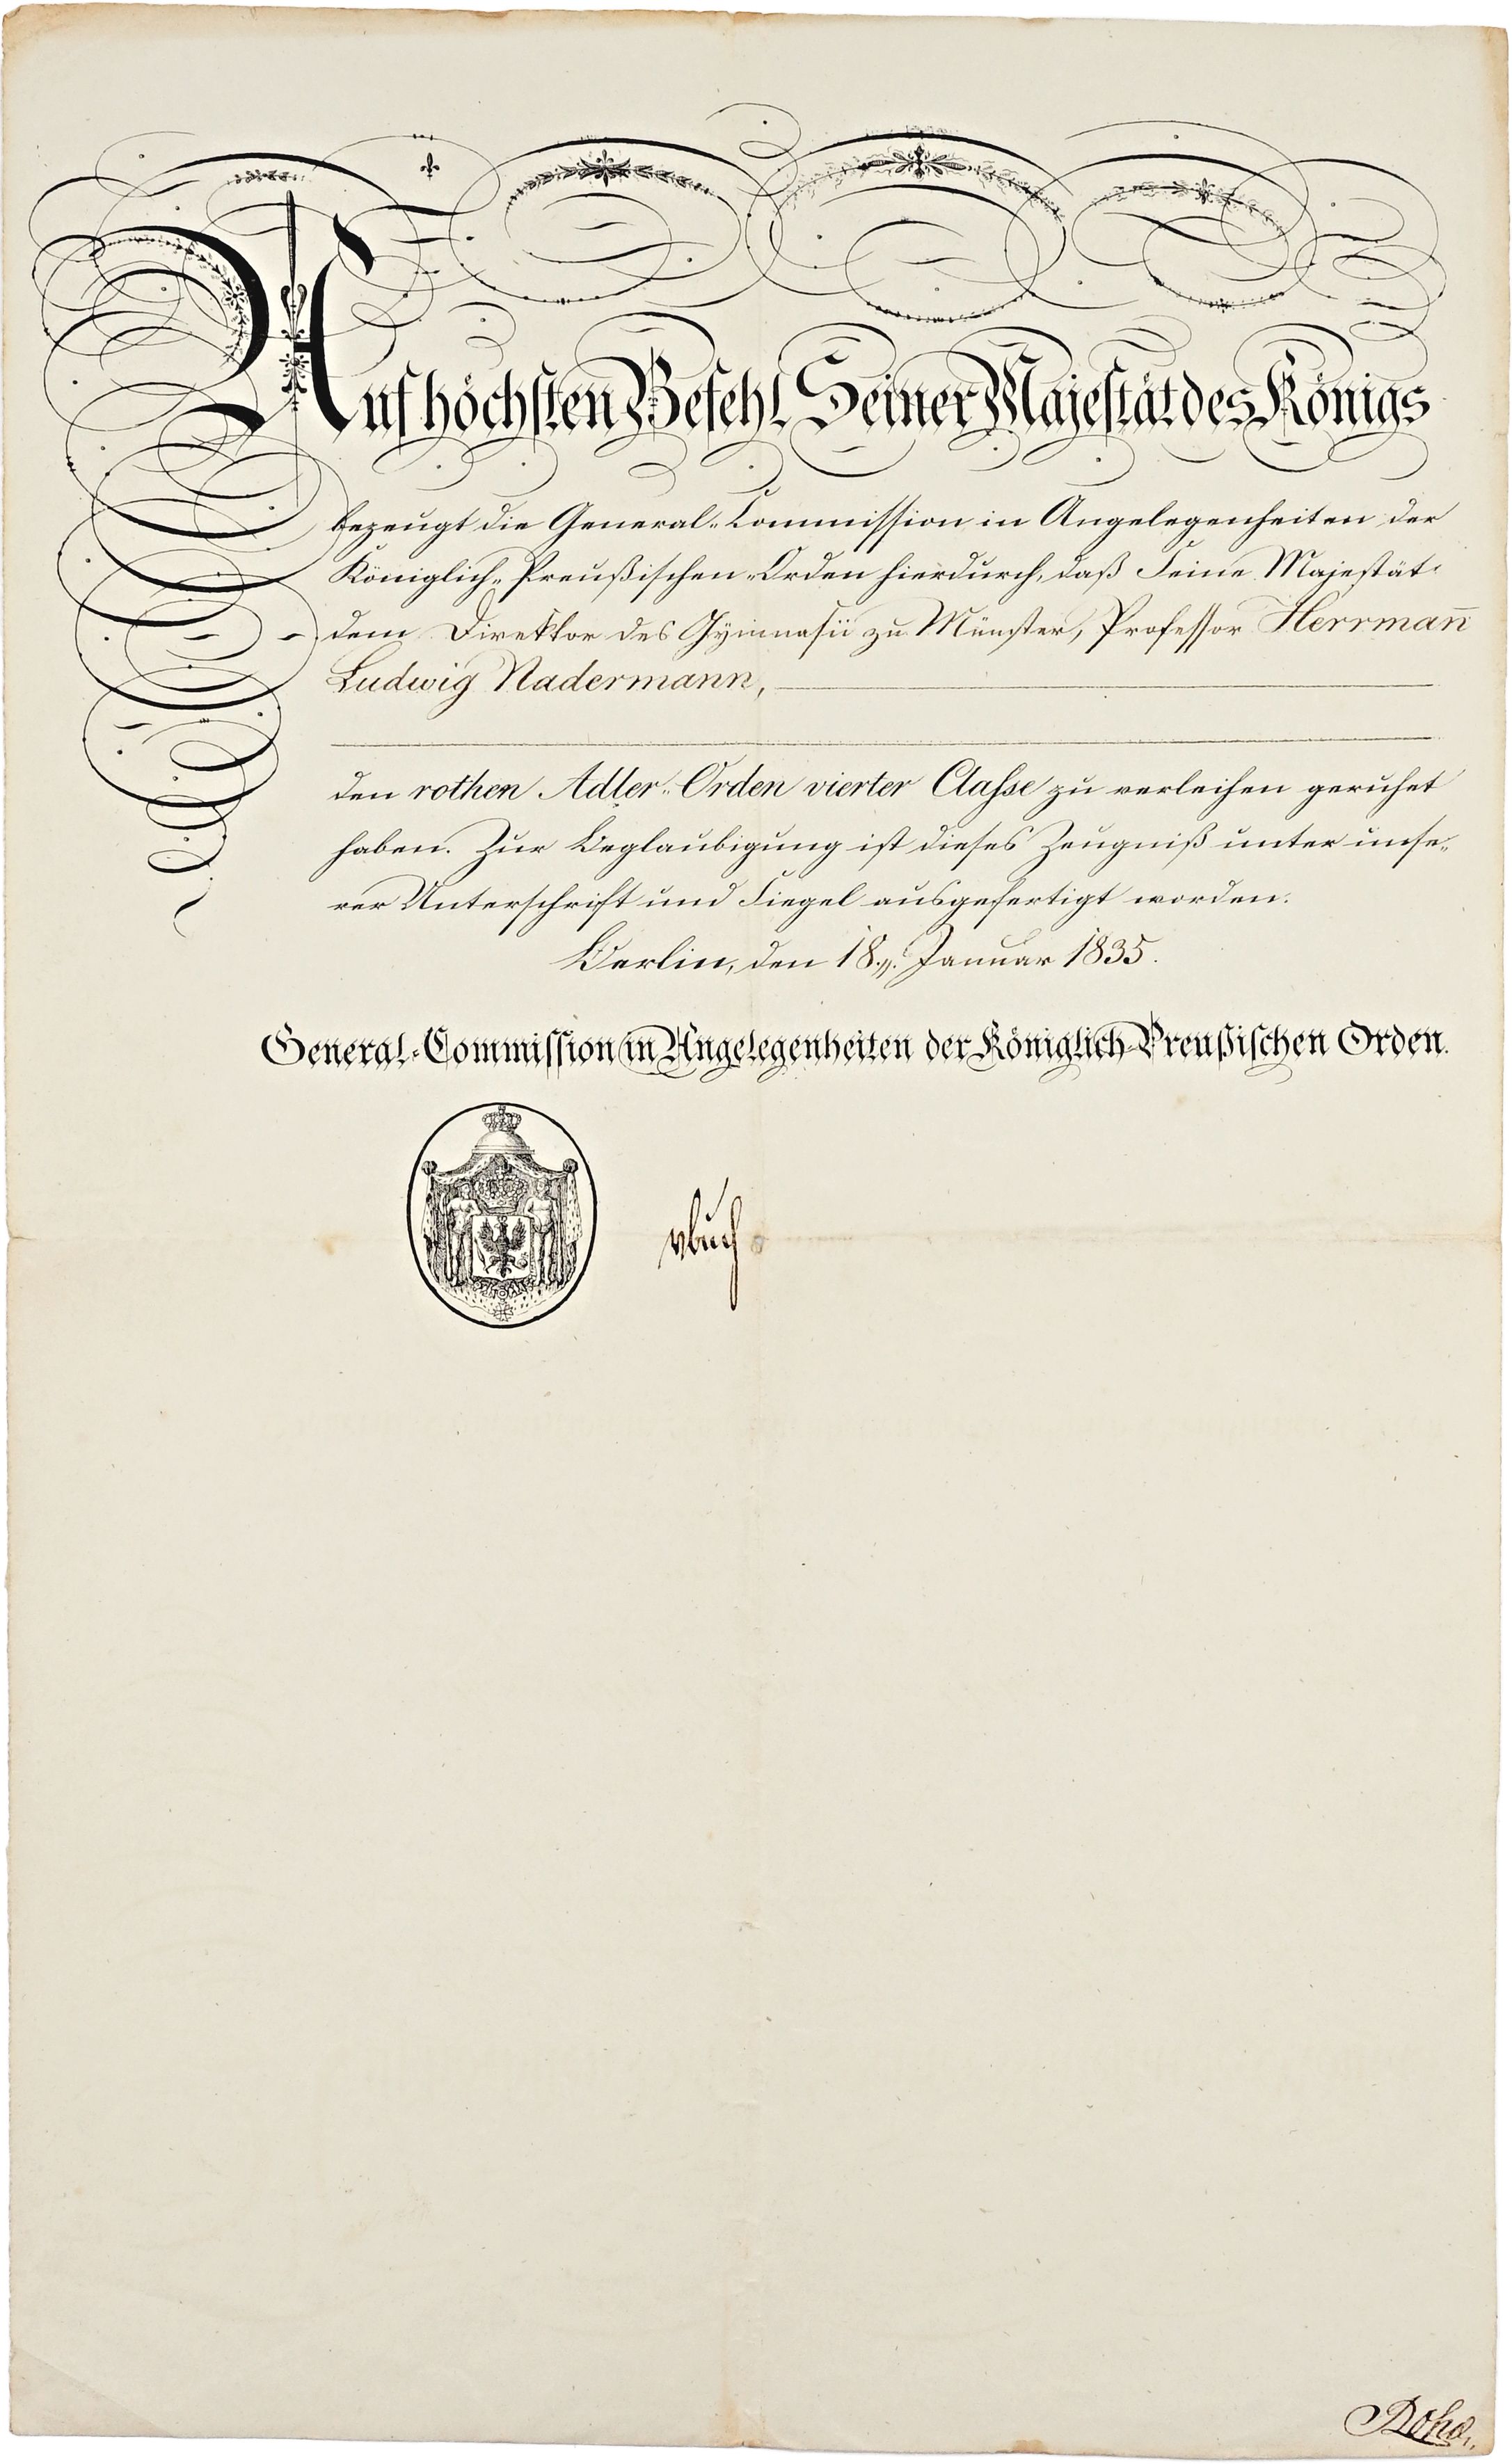 Auf höchsten Befehl Seiner Majestät des Königs
bezeugt die General-Commission in Angelegenheiten der
Königlich-Preußischen-Orden hierdurch, daß Seine Majestät
dem Direktor des Gymnasii zu Münster, Professor Herrman̅
Ludwig Nadermann,
den rothen Adler-Orden vierter Classe zu verleihen geruhet
haben. Zur Beglaubigung ist dieses Zeugniß unter unse-
rer Unterschrift und Siegel ausgefertigt worden.
Berlin, den 18. Januar 1835.
General-Commission in Angelegenheiten der Königlich-Preußischen Orden.